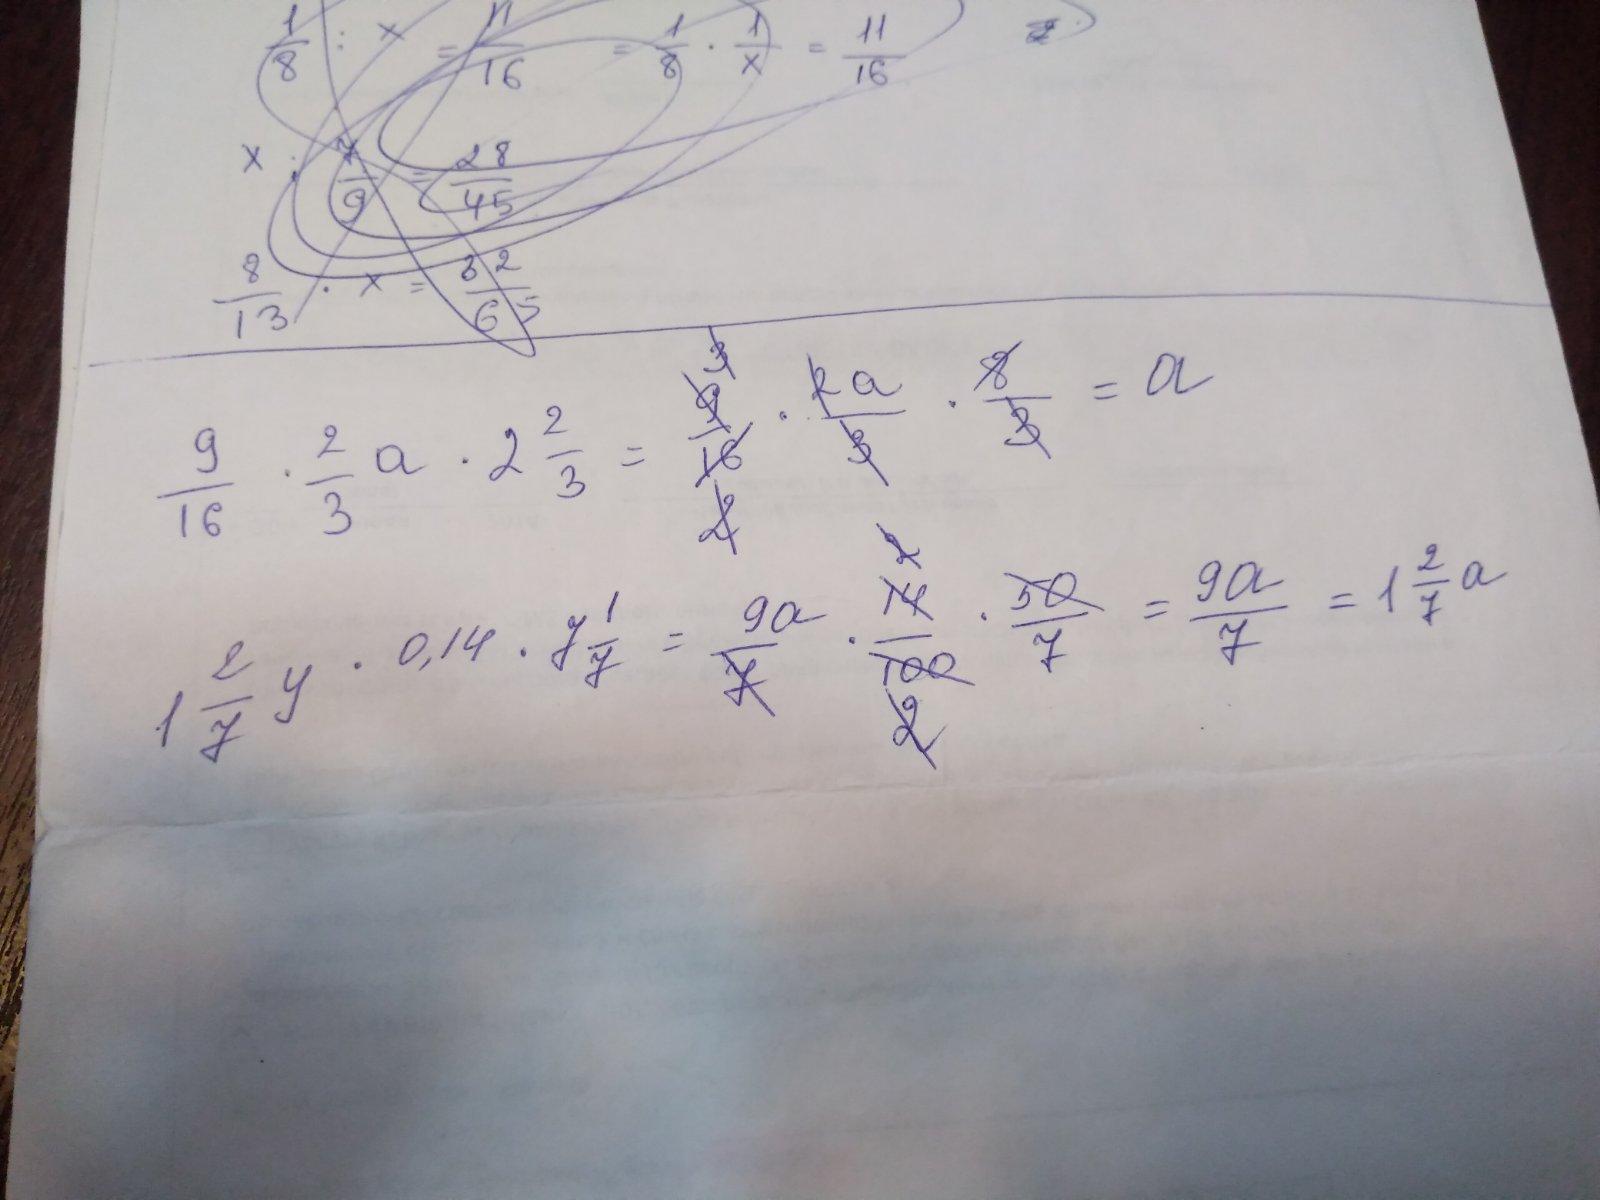 1/8 : x = 11/16 = 1/8 · 1/x = 11/16
x : 7/9 = 28/45
8/13 · x = 32/65
9/16 · 2/3 a · 2 2/3 = 9/16 · 2a/3 · 8/3 = a
1 2/7 y · 0,14 · 7 1/7 = 9a/7 · 14/100 · 50/7 = 9a/7 = 1 2/7 a